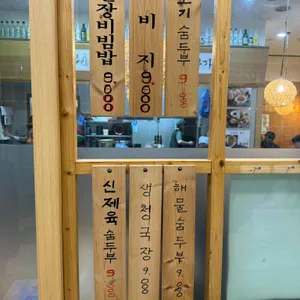 장비빔밥
9.000
비지
9.000
기 숨두부
9.000
신제육 숨두부
9.000
생청국장
9.000
해물숨두부
9.000